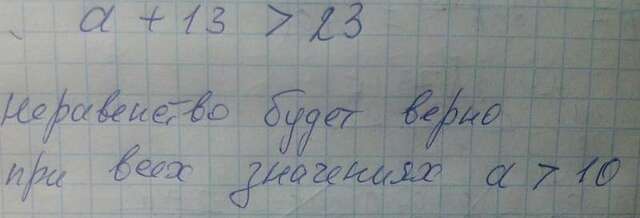 a + 13 > 23
неравенство будет верно
при всех значениях a > 10